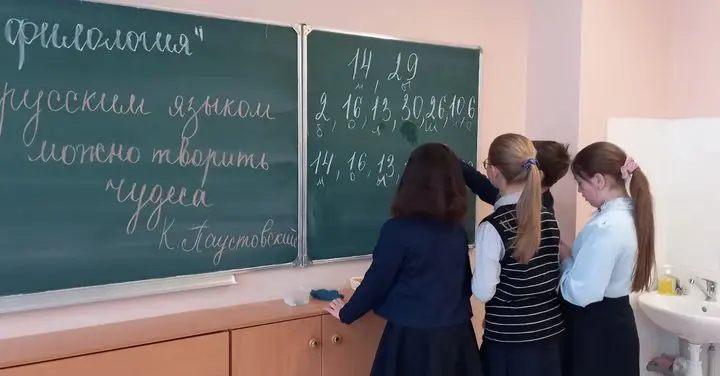 филология"
русским языком
можно творить
чудеса
К. Паустовский
14, 29
м ы
2, 16, 13, 30, 26, 10, 6
б о л ш и е
14, 16, 13,
м о л